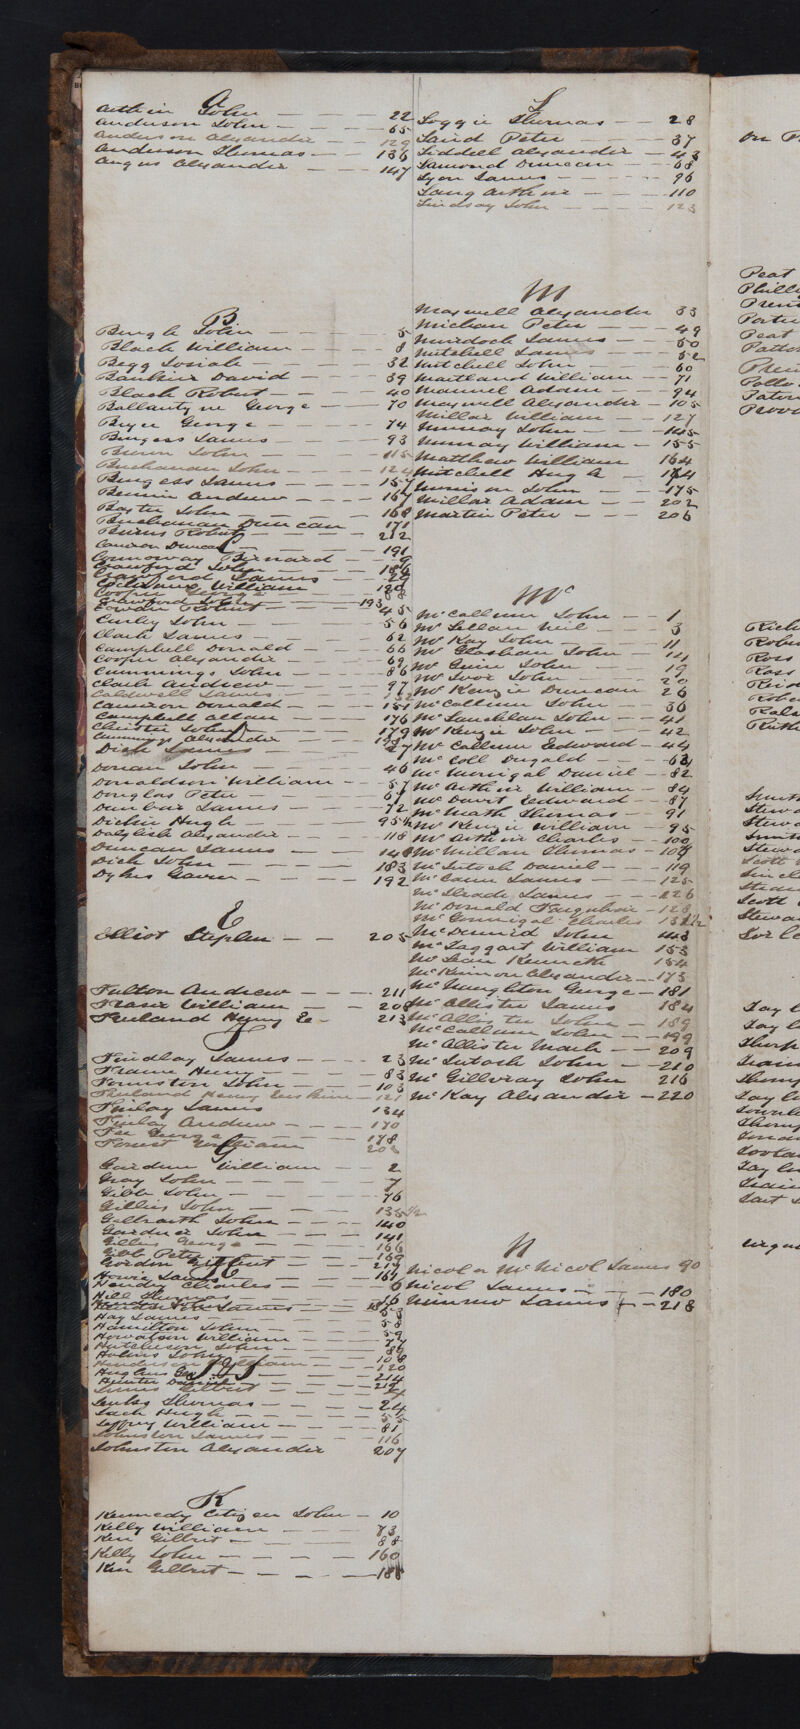 A
Arthur John — — — 22
Anderson John — — — 65
Anderson Alexander — 129
Anderson Thomas — — 136
Angus Alexander — — 147
B
Bengle John — — — 5
Black William — — — 8
Begg Josiah — — — 32
Bankier David — — 39
Black Robert — — — 40
Ballantyne George — — 70
Bryce George — — — 74
Burgess James — — — 93
Brown John — — — 115
Buchanan John — — — 124
Burgess James — — — 157
Bennie Andrew — — — 167
Baxter John — — — 168
Buchanan Duncan 171
Burns Robert — — 212
C
Cameron Duncan — — 191
Connoway Bernard — 9
Crawford John — — 186
Crawford James — 29
William
Crawford John — 193
Cowan Robert — — 45
Curley John — — — 56
Clark James — — — 62
Campbell Donald — — 66
Cooper Alexander — — 69
Cummings John — — 86
Clark Andrew — — — 97
Caldwell James
Cameron Donald — — 151
Campbell Allan — — 176
Christie John — — 179
Cummings Alexander
D
Dick James — — 27
Dorian John — — — 46
Donaldson William — — 57
Douglas Peter — — 67
Dunbar James — — — 72
Dickie Hugh — — — 95½
Dalglish Alexander — — 118
Duncan James — — 148
Dick John — — — 183
Dykes Gavin — — — 192
E
Elliot Stephen — — 205
Fulton Andrew — — — 211
Fraser William — — 208
Freeland Henry E — 213
F
Findlay James — — — 23
Frame Henry — — — 83
Forniston John — — — 103
Freeland Henry Erskine — 121
Finlay James 134
Finlay Andrew — — 170
Fee George — — — 178
Forrest William 203
G
Gardner William — — 2
Gray John — — — 7
Gibb John — — — 76
Gillies John — — — 135½
Galbraith John — — — 140
Gardner John — — — 141
Gillies George — — — 166
Gibb Peter — — — 169
Gordon Gilbert — — 219
H
Howie James — — 164
Hendry Charles — — 6
Hill Thomas — — — 16
Henderson James — —
Hay James — — — 53
Hamilton John — — — 58
Howatson William — — 59
Hutcheson John — — 77
Holms John — — —
Henderson William — — 120
Hughes — — 214
Hunter Daniel — — 215
I & J
Innes Gilbert — — 4
Jenks Thomas — — — 24
Jack Hugh — — — 55
Jeffrey William — — — 81
Johnston James — — — 116
Johnston Alexander 207
K
Kennedy Citizen John — 10
Kelly William — — — 73
Kerr Gilbert — — — 88
Kelly John — — — — 160
Kerr Gilbert — — — — 188
L
Loggie Thomas — — 28
Laird Peter — — — 37
Liddell Alexander — 43
Lamond Duncan — — 68
Lyon James — — — — 96
Lang Arthur — — — 110
Lindsay John — — — — 123
M
Maxwell Alexander 33
Michan Peter — — — 49
Murdoch James — — 50
Mitchell James — — — 52
Mitchell John — — — 60
Maitland William — — 71
Manuel Adam — — — 94
Maxwell Alexander — 105
Millar William — — — 127
Murray John — — — 145
Murray William — — 155
Matthew William 164
Mitchell Hugh — — 174
Morrison John — — 175
Millar Adam — — — 202
Martin Peter — — — 206
Mc
McCallum John — — 1
McLellan Neil — — — 3
McKay John — — — 11
McGlashan John — — 14
McGuire John — — — 19
McIvor John — — — 20
McKenzie Duncan 26
McCallum John — — — 36
McLauchlan John — — 41
McKenzie John — — — 42
McCallum Edward — 44
McColl Dugald — — — 64
McMonigal Daniel — — 82
McArthur William — 84
McDavit Edward — — 87
McMath Thomas — — 91
McKenzie William — — 95
McArthur Charles — — 100
McMillan Thomas — 109
McIntosh Daniel — — — 119
McCann James — — — 125
McReady James — — — 126
McDonald Farquhar — 128
McGonnigal Charles 131½
McDermid John 143
McTaggart William 153
McLean Kenneth 154
McKinnon Alexander — 173
McNaughton George — 181
McAllister James 184
McAllister John — — 189
McCallum John — — 199
McAllister Mark — — 209
McIntosh John — — 210
McGillivray John 216
McKay Alexander — 220
N
Nicol or McNicol James 90
Nicol James — — — 180
Nimmo James — — 218
On P
Peat
Phill
Porte
Peat
Patter
Paton
Robe
Ross
Ross
Reid
Robe
Stewa
Stewa
Scott
Scott
Stewa
Tay
Tay
Train
Thom